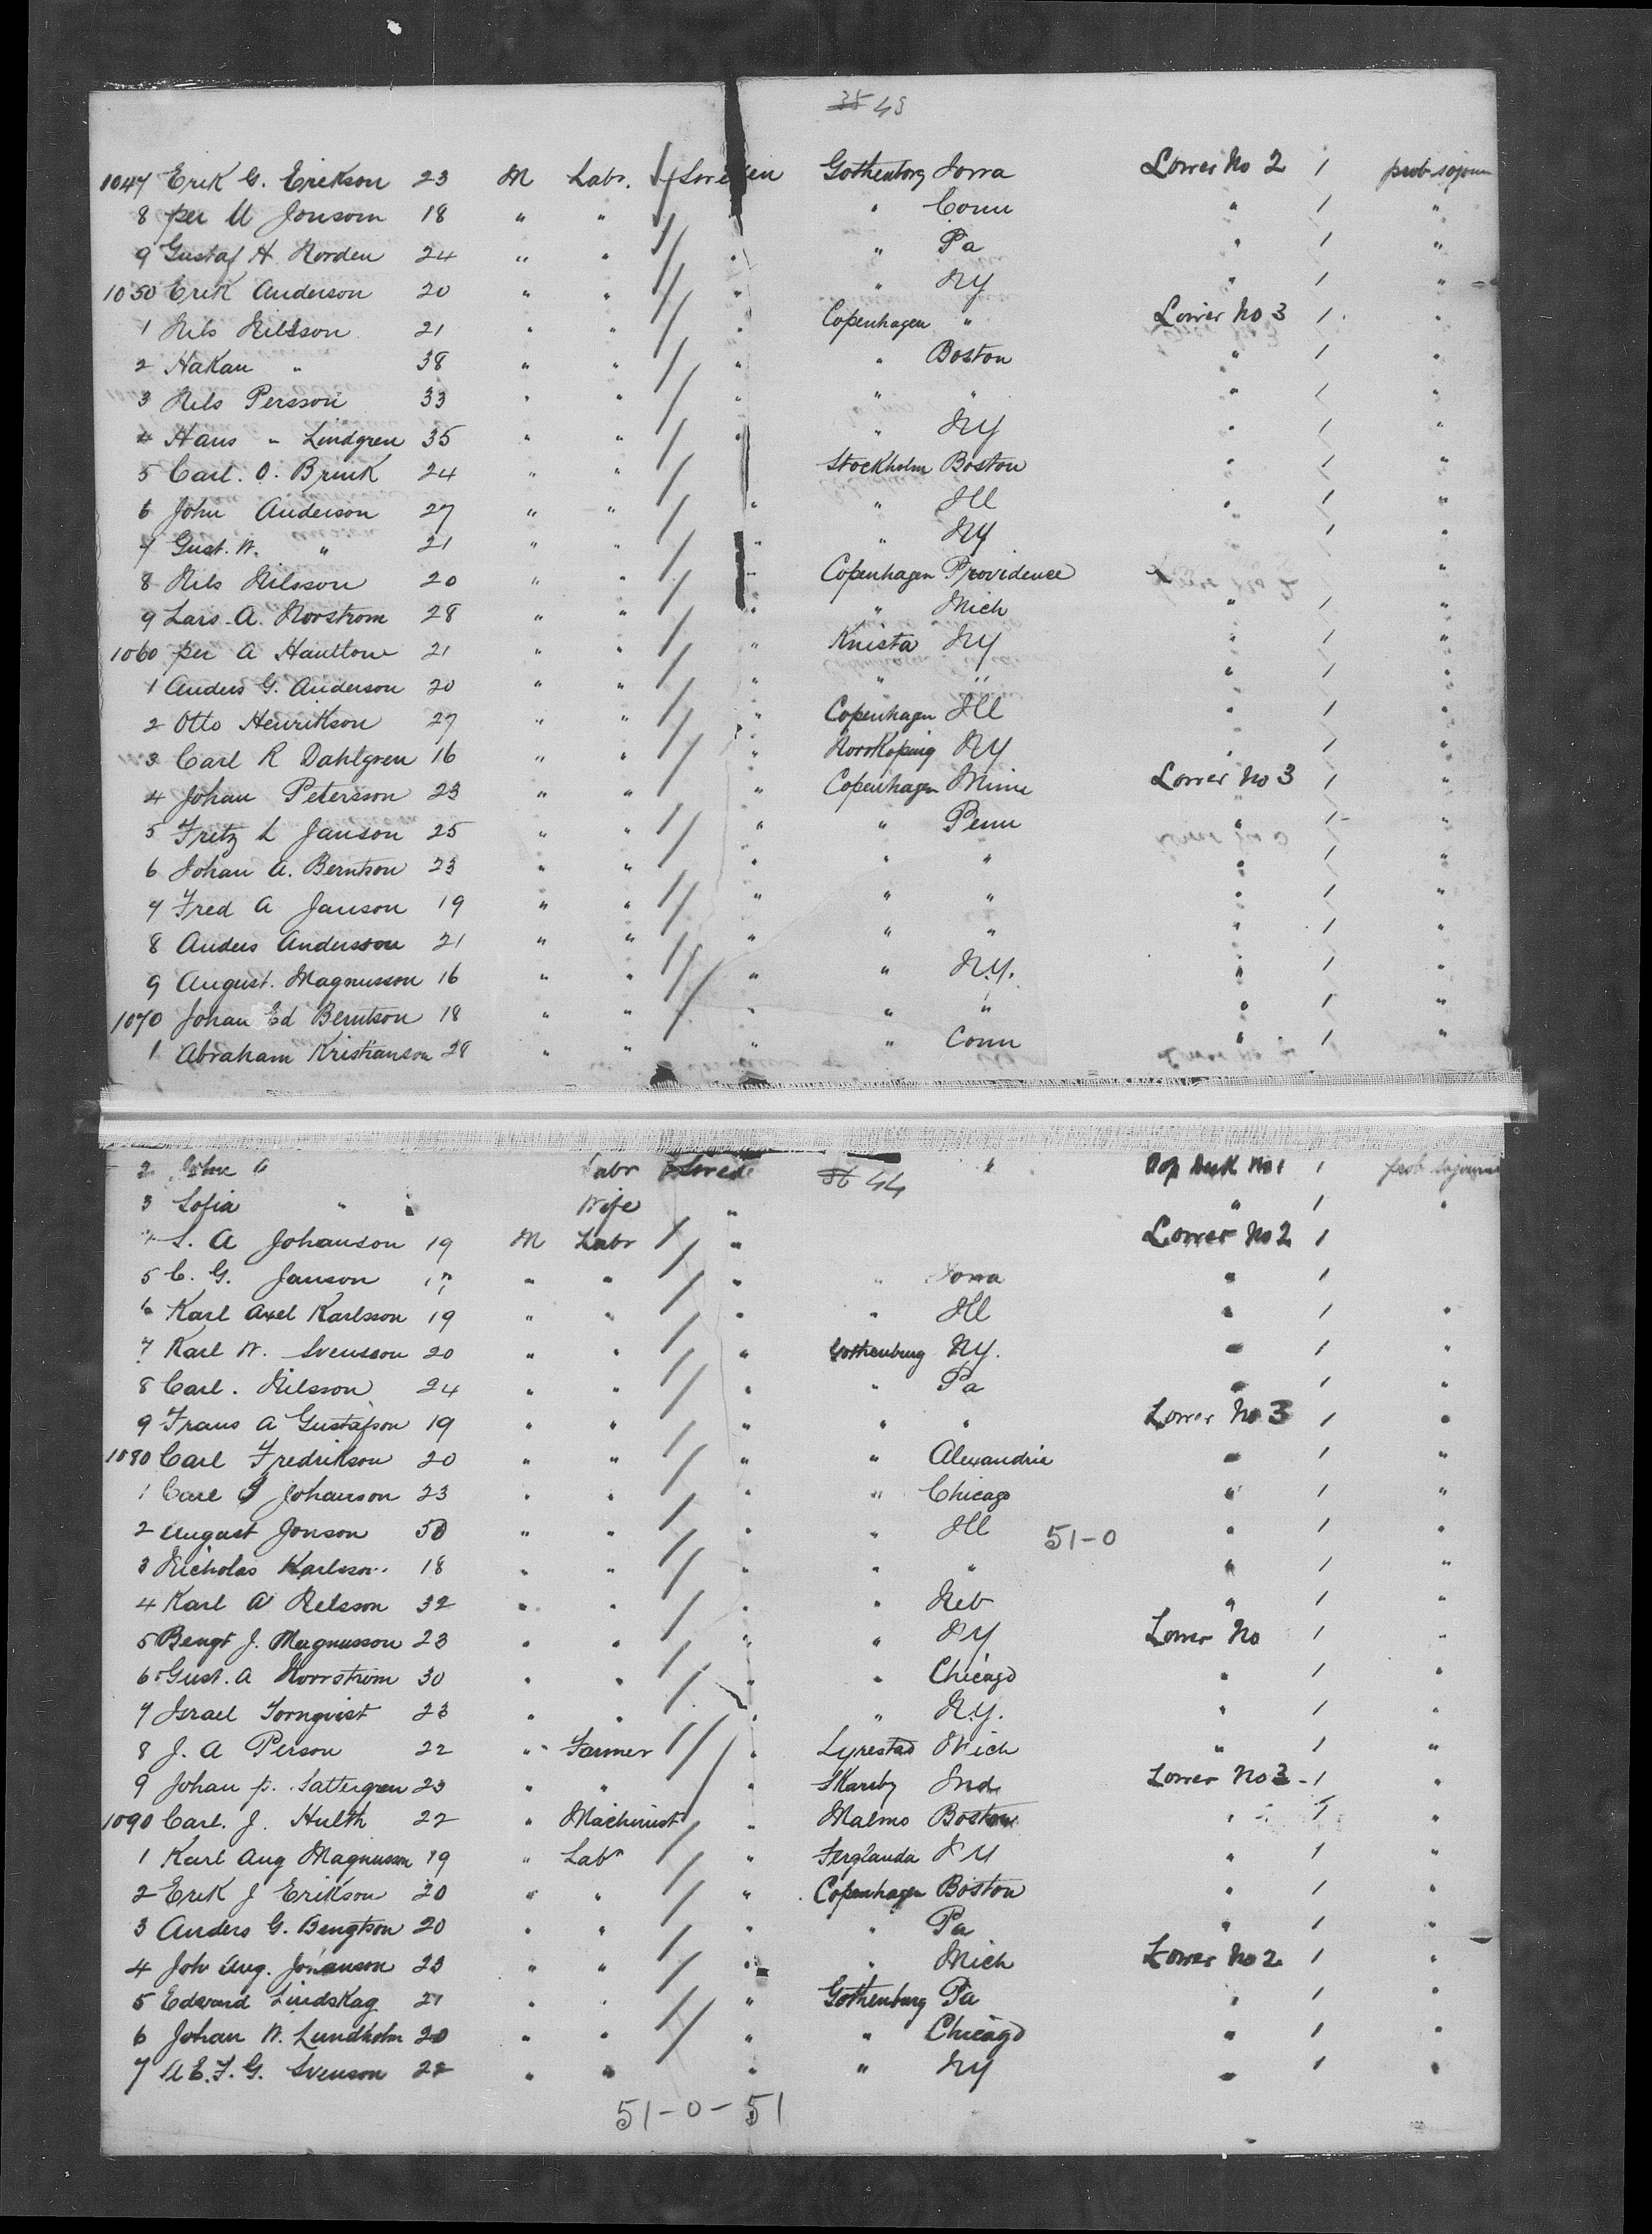 35 43
1047 Erik G. Erikson 23 M Labr. Sweden Gothenborg Iowa Lower No 2 1 prob sojourn
8 per U Jonsom 18 " " " Conn " 1 "
9 Gustaf H. Norden 24 " " " " Pa " 1 "
1050 Erik Anderson 20 " " " " NY " 1 "
1 Nils Nilsson 21 " " " Copenhagen " Lower No 3 1 "
2 Hakan " 38 " " " " Boston " 1 "
3 Nils Persson 33 " " " " " " 1 "
4 Hans " Lindgren 35 " " " " NY " 1 "
5 Carl. O. Brink 24 " " Stockholm Boston " 1 "
6 John Anderson 27 " " " " Ill " 1 "
7 Gust. W. " 21 " " " " NY " 1 "
8 Nils Nilsson 20 " " " Copenhagen Providence "
9 Lars. A. Norstrom 28 " " " " Mich " 1 "
1060 per A 21 " " " Knista NY " 1 "
1 Anders G. Anderson 20 " " " " " " 1 "
2 Otto Henrikson 27 " " " Copenhagen Ill " 1 "
3 Carl R Dahlgren 16 " " " Norrkoping NY " 1 "
4 Johan Petersson 23 " " " Copenhagen Minn Lower No 3 1 "
5 Fretz L Janson 25 " " " " Penn " 1 "
6 Johan A. Berntson 23 " " " " " " 1 "
7 Fred A Janson 19 " " " " " " 1 "
8 Anders Andersson 21 " " " " " " 1 "
9 August. Magnusson 16 " " " " N.Y. " 1 "
1070 Johan Ed Berntson 18 " " " " " " 1 "
1 Abraham Kristianson 28 " " " " Conn " 1 "
2 John A Labr Swede 36 44 " Top Deck No 1 1 prob sojourn
3 Sofia " Wife " " 1 "
4 S. A Johanson 19 M Labr " Lower No 2 1
5 C. G. Janson " " " " Iowa " 1
6 Karl Axel Karlsson 19 " " " " Ill " 1 "
7 Karl W. Svensson 20 " " " Gothenburg NY. " 1 "
8 Carl. Nilsson 24 " " " " Pa " 1 "
9 Frans A Gustafson 19 " " " " " Lower No 3 1 "
1080 Carl Fredrikson 20 " " " " Alexandria " 1 "
1 Carl J Johanson 23 " " " " Chicago " 1 "
2 August Jonson 50 " " " " Ill 51-0 " 1 "
3 Nicholas Karlsson 18 " " " " " " 1 "
4 Karl A Nelsson 32 " " " " Neb " 1 "
5 Bengt J. Magnusson 23 " " " " NY Lower No 1 "
6 Gust. A Norrstrom 30 " " " Chicago " 1 "
7 Israel Tornqvist 23 " " " " N.Y. " 1 "
8 J. A Person 22 " Farmer " Lyrestad Mich " 1 "
9 Johan p. Sattergren 23 " " " Skarby Ind. Lower No 3 1 "
1090 Carl. J. Hulth 22 " Machinist " Malmo Boston " 1 "
1 Karl Aug Magnusson 19 " Labr " Ferglanda NY " 1 "
2 Erik J Erikson 20 " " " Copenhagen Boston " 1 "
3 Anders G. Bengtson 20 " " " " Pa " 1 "
4 Joh Aug. Johanson 23 " " " " Mich Lower No 2 1 "
5 Edward Lindskag 21 " " " Gothenburg Pa " 1 "
6 Johan W. Lundholm 20 " " " " Chicago " 1 "
7 A E. F. G. Svenson 22 " " " " NY " 1 "
51-0-51